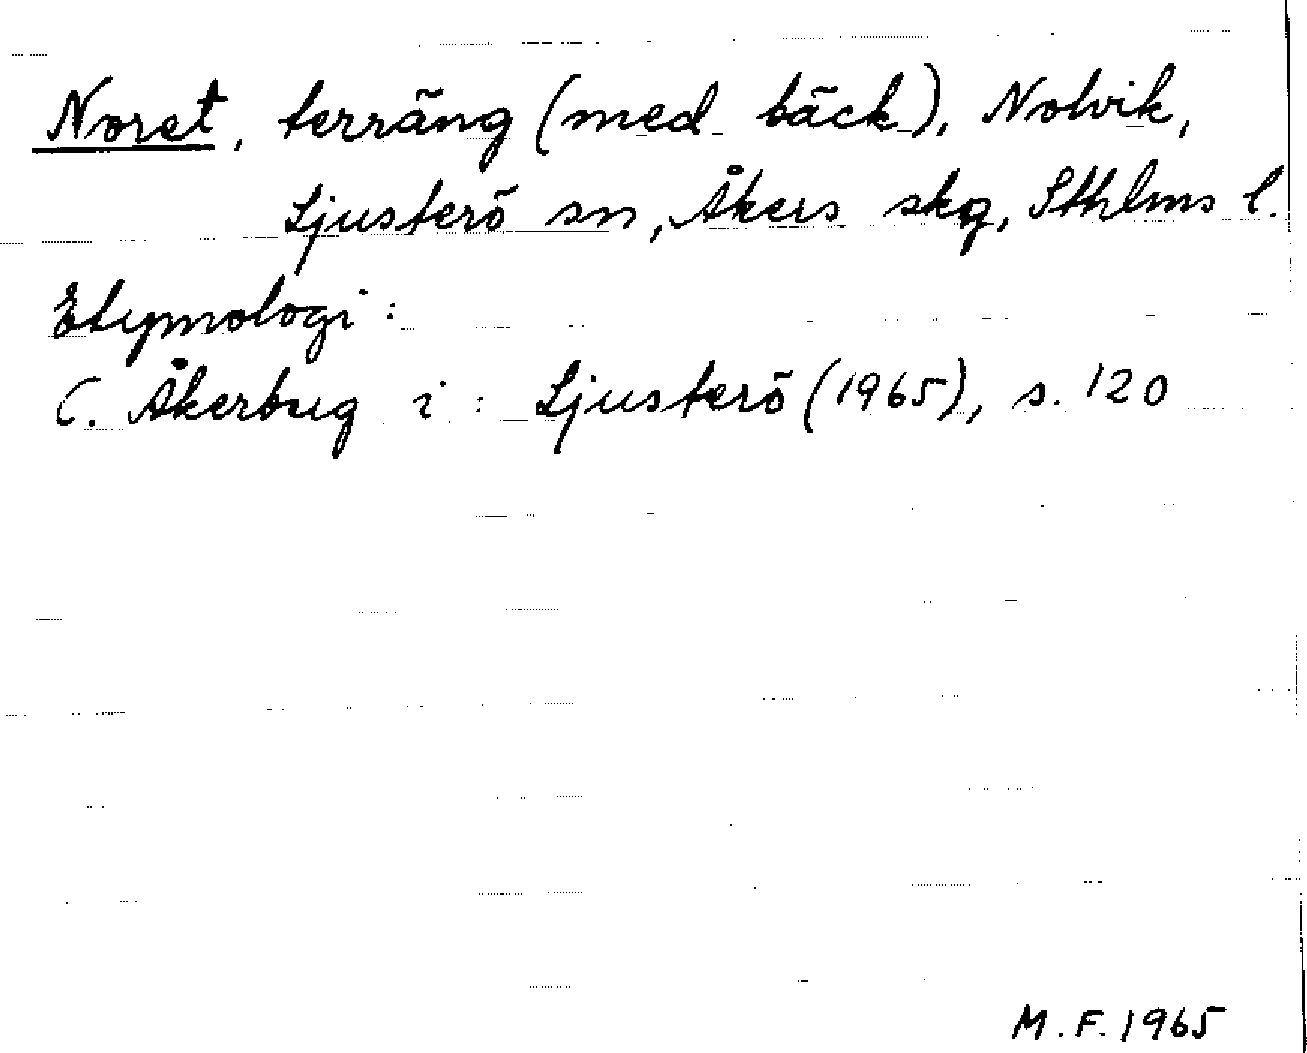 Noret, terräng (med bäck), Nolvik,
Ljusterö sn, Åkers skg, Sthlms l.
Etymologi:
C. Åkerbug i: Ljusterö (1965), s. 120
M.F. 1965